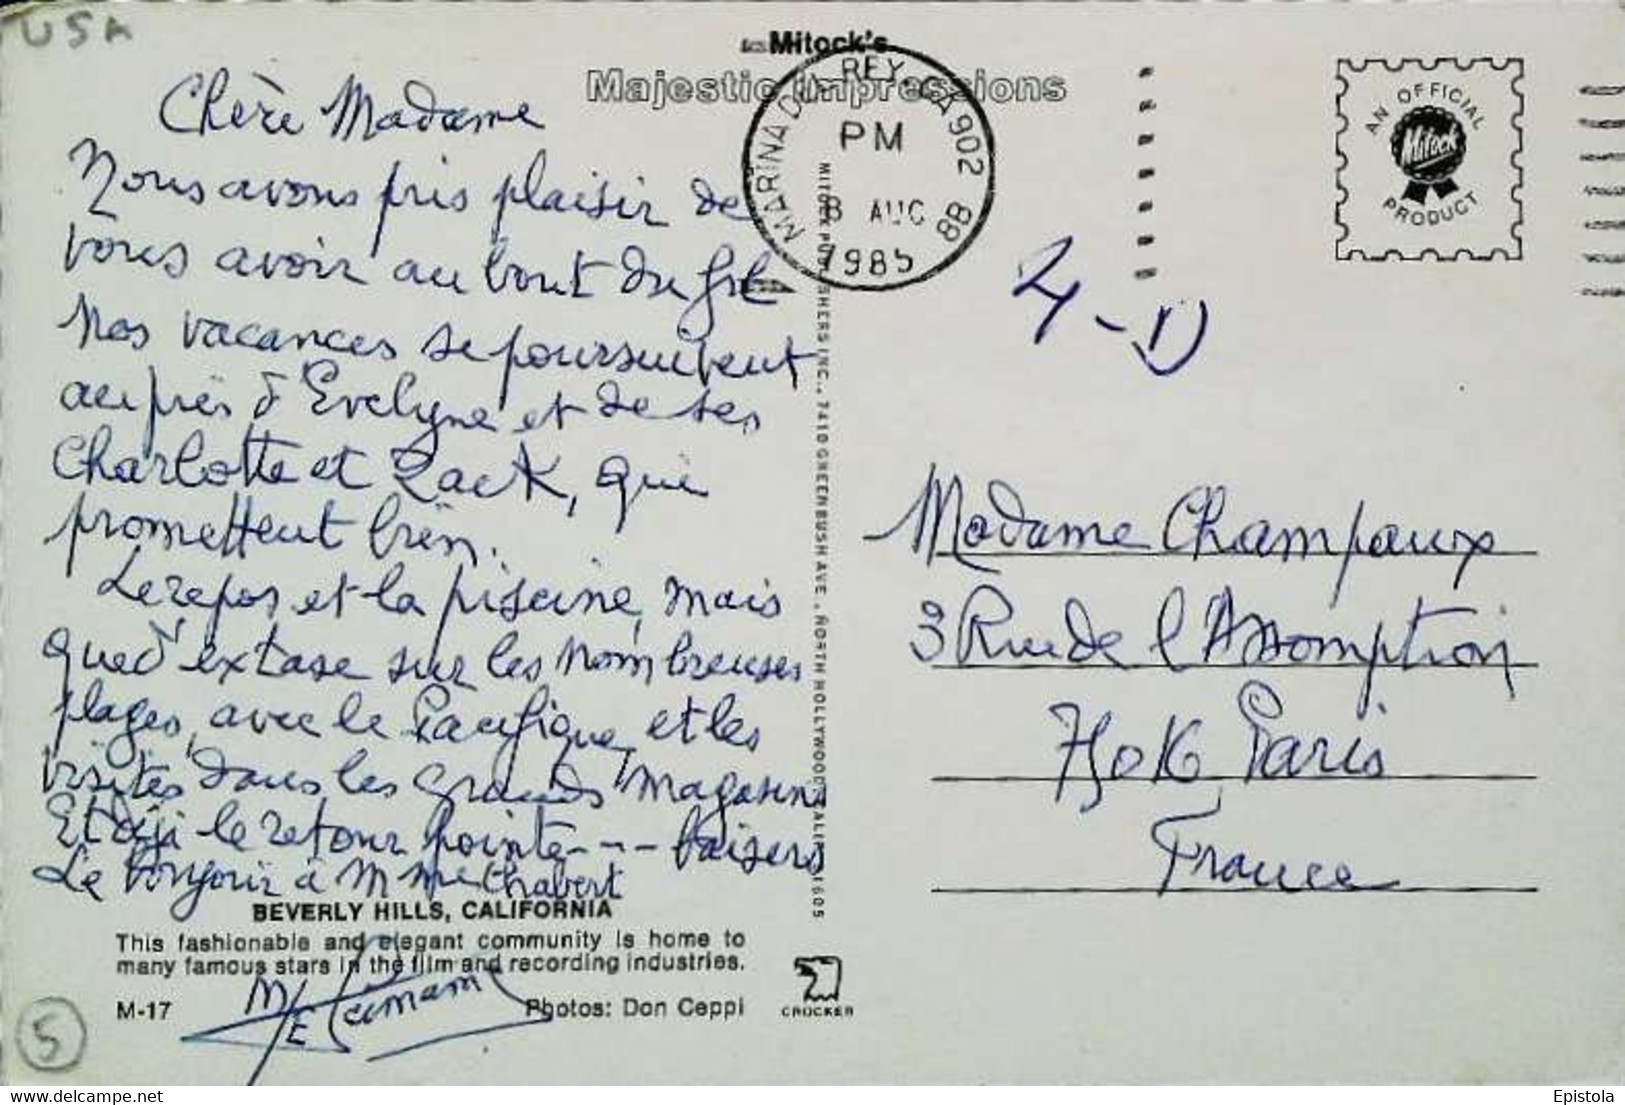 USA
Mitock's
Majestic Impressions
MARINA DEL REY, CA 902
PM
8 AUG
1985
88
AN OFFICIAL
Mitock
PRODUCT
Chère Madame
Nous avons pris plaisir de
vous avoir au bout du fil
Nos vacances se poursuivent
auprès d'Evelyne et de ses
Charlotte et Zack, qui
promettent bien.
Le repos et la piscine, mais
que d'extase sur les nombreuses
plages, avec le Pacifique, et les
visites dans les grands magasins
Et déjà le retour pointe --- baisers
Le bonjour à M Mme Chabert
MITOCK PUBLISHERS INC., 7410 GREENBUSH AVE., NORTH HOLLYWOOD, CALIF. 91605
Madame Champaux
3 Rue de l'Assomption
75016 Paris
France
BEVERLY HILLS, CALIFORNIA
This fashionable and elegant community is home to
many famous stars in the film and recording industries.
M-17
Photos: Don Ceppi
CROCKER
5
Epistola